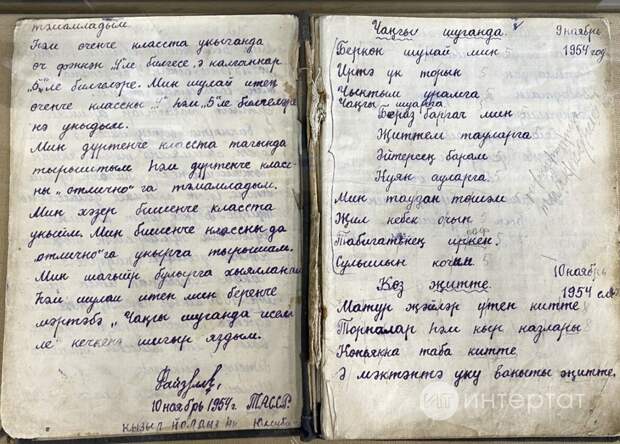 тәмамладым.
Һәм өченче класста укыганда
өч фәннән 4ле билгесе, ә калганнар
"5"ле билгеләре. Мин шулай итеп
өченче классны "4" һәм "5"ле билгеләре
нә укыдым.
Мин дүртенче класста тагында
тырыштым һәм дүртенче класс-
ны "отлично" га тәмамладым.
Мин хәзер бишенче класста
укыйм. Мин бишенче классны да
"отлично"га укырга тырышам.
Мин шагыйр булырга хыялланам
Һәм шулай итеп мин беренче
мәртәбә "Чаңгы шуганда исем-
ле" кечкенә шигыр яздым.
10 ноябрь 1954г. ТАССР.
кызыл йолдыз
Чаңгы шуганда
9 ноябрь
1954 год.
Беркөн шулай мин
Иртә үк торып
Чыктым урамга
Чаңгы шуарга
Бераз баргач мин
Җиттем тауларга
Әйтерсең барам
Куян ауларга.
Мин таудан төшәм
Җил кебек очып
Табигатьнең
Сулышын
Көз җитте.
10 ноябрь
1954 ел
Матур җәйләр үтеп китте
Торналар һәм кыр казлары
Көньякка таба китте
Ә мәктәптә уку вакыты җитте.
ИТ интертат